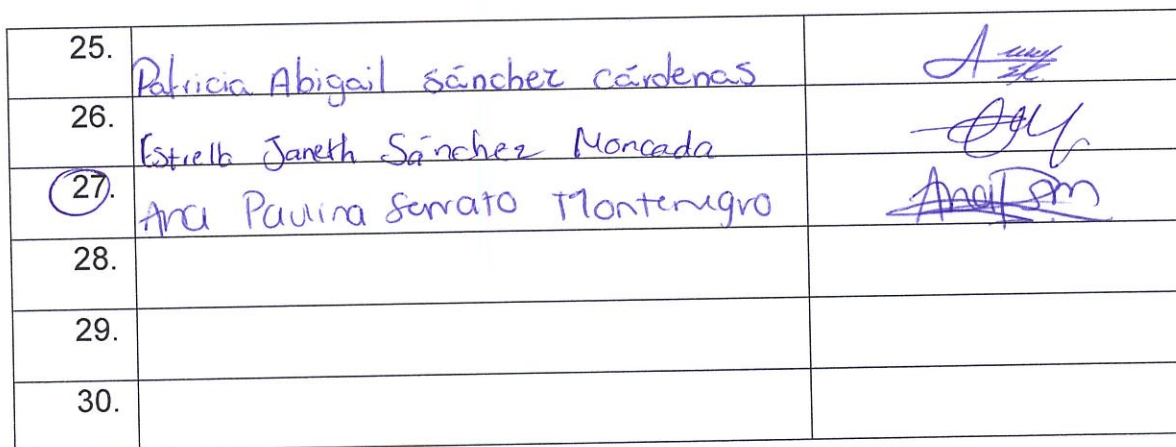 25. Patricia Abigail sánchez cárdenas
26. Estrella Janeth Sánchez Moncada
27. Ana Paulina Serrato Montenegro
28.
29.
30.